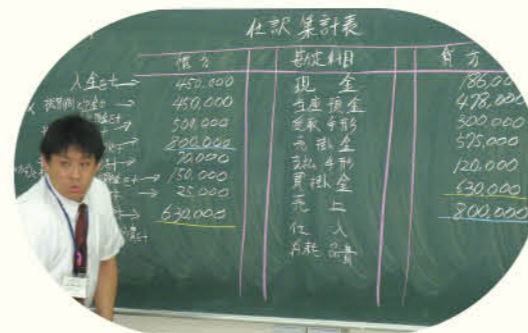 仕訳集計表
借方 勘定科目 貸方
入金 450,000 現金 186,000
450,000 当座預金 478,000
500,000 受取手形 300,000
800,000 売掛金 575,000
70,000 支払手形 120,000
150,000 買掛金 630,000
25,000 売上 800,000
630,000 仕入
消耗品費